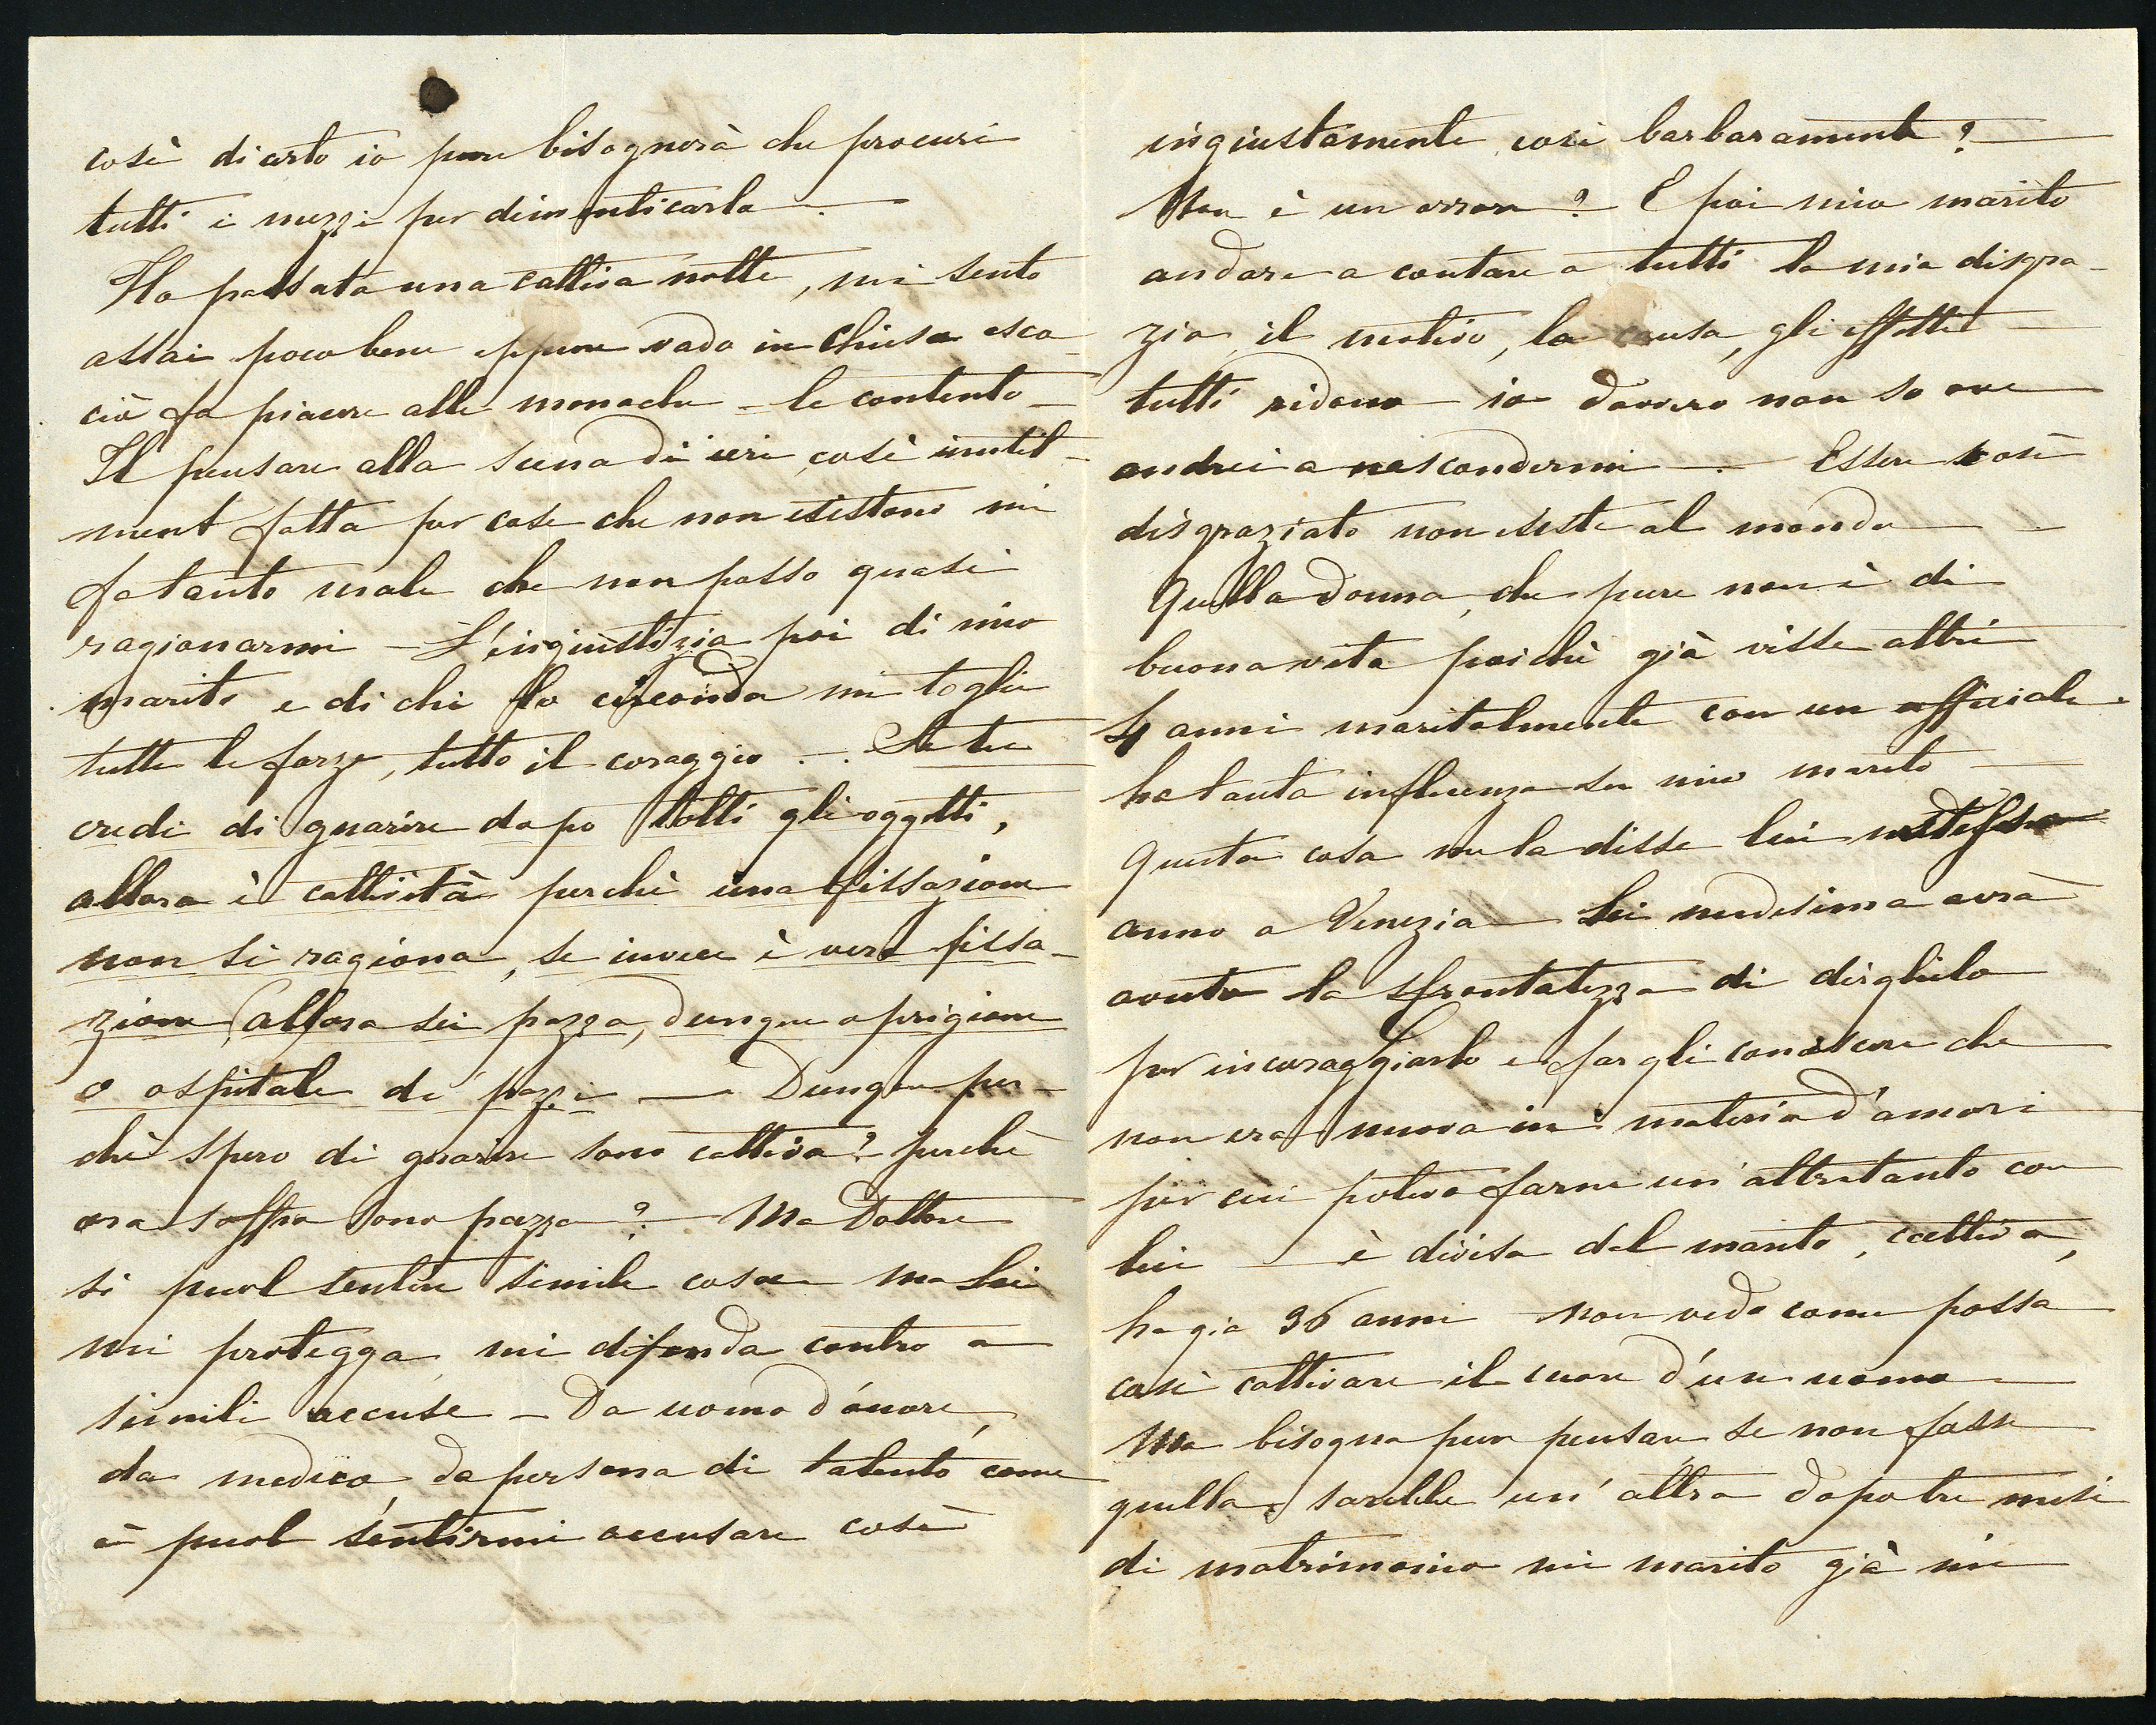 così di certo io pure bisognerà che procuri
tutti i mezzi per dimenticarla –
Ho passata una cattiva notte, mi sento
assai poco bene eppure vado in chiesa esco
ciò fa piacere alle monache – le contento –
Il pensare alla scena di ieri così inutil-
ment fatta per cose che non esistono mi
fa tanto male che non posso quasi
ragionarmi – L'ingiustizia poi di mio
marito e di chi lo circonda mi toglie
tutte le forze, tutto il coraggio . – . Se tu
credi di guarire dopo tolti gli oggetti,
allora è cattività perchè una fissazione
non si ragiona, se invece è vera fissa-
zione, allora sei pazza, dunque o prigione
o ospitale de' pazzi – Dunque per-
chè spero di guarire sono cattiva? perchè
ora soffro sono pazza? – Ma Dottore
si puol sentire simile cosa ma Lei
mi protegga mi difenda contro a
simili accuse – Da uomo d'onore,
da medico, da persona di talento come
è puol sentirmi accusare così
ingiustamente così barbaramente? –
Non è un orrore? E poi mio marito
andare a contare a tutti la mia disgra-
zia, il motivo, la causa, gli effetti –
tutti ridono – io davvero non so ove
andrei a nascondermi – Essere così
disgraziato non esiste al mondo –
Quella donna, che pure non è di
buona vita poichè già visse altri
4 anni maritalmente con un ufficiale
ha tanta influenza su mio marito –
Questa cosa me la disse lui
anno a Venezia – Lei medesima avrà
avuto la sfrontatezza di dirglielo
per incoraggiarlo e fargli conoscere che
non era nuova in materia d'amori
per cui poteva farne un'altretanto con
lui – è divisa dal marito, cattiva,
ha già 36 anni non vedo come possa
così cattivare il cuore d'un uomo –
Ma bisogna pur pensare se non fosse
quella sarebbe un'altra dopo tre mesi
di matrimonio mi marito già mi